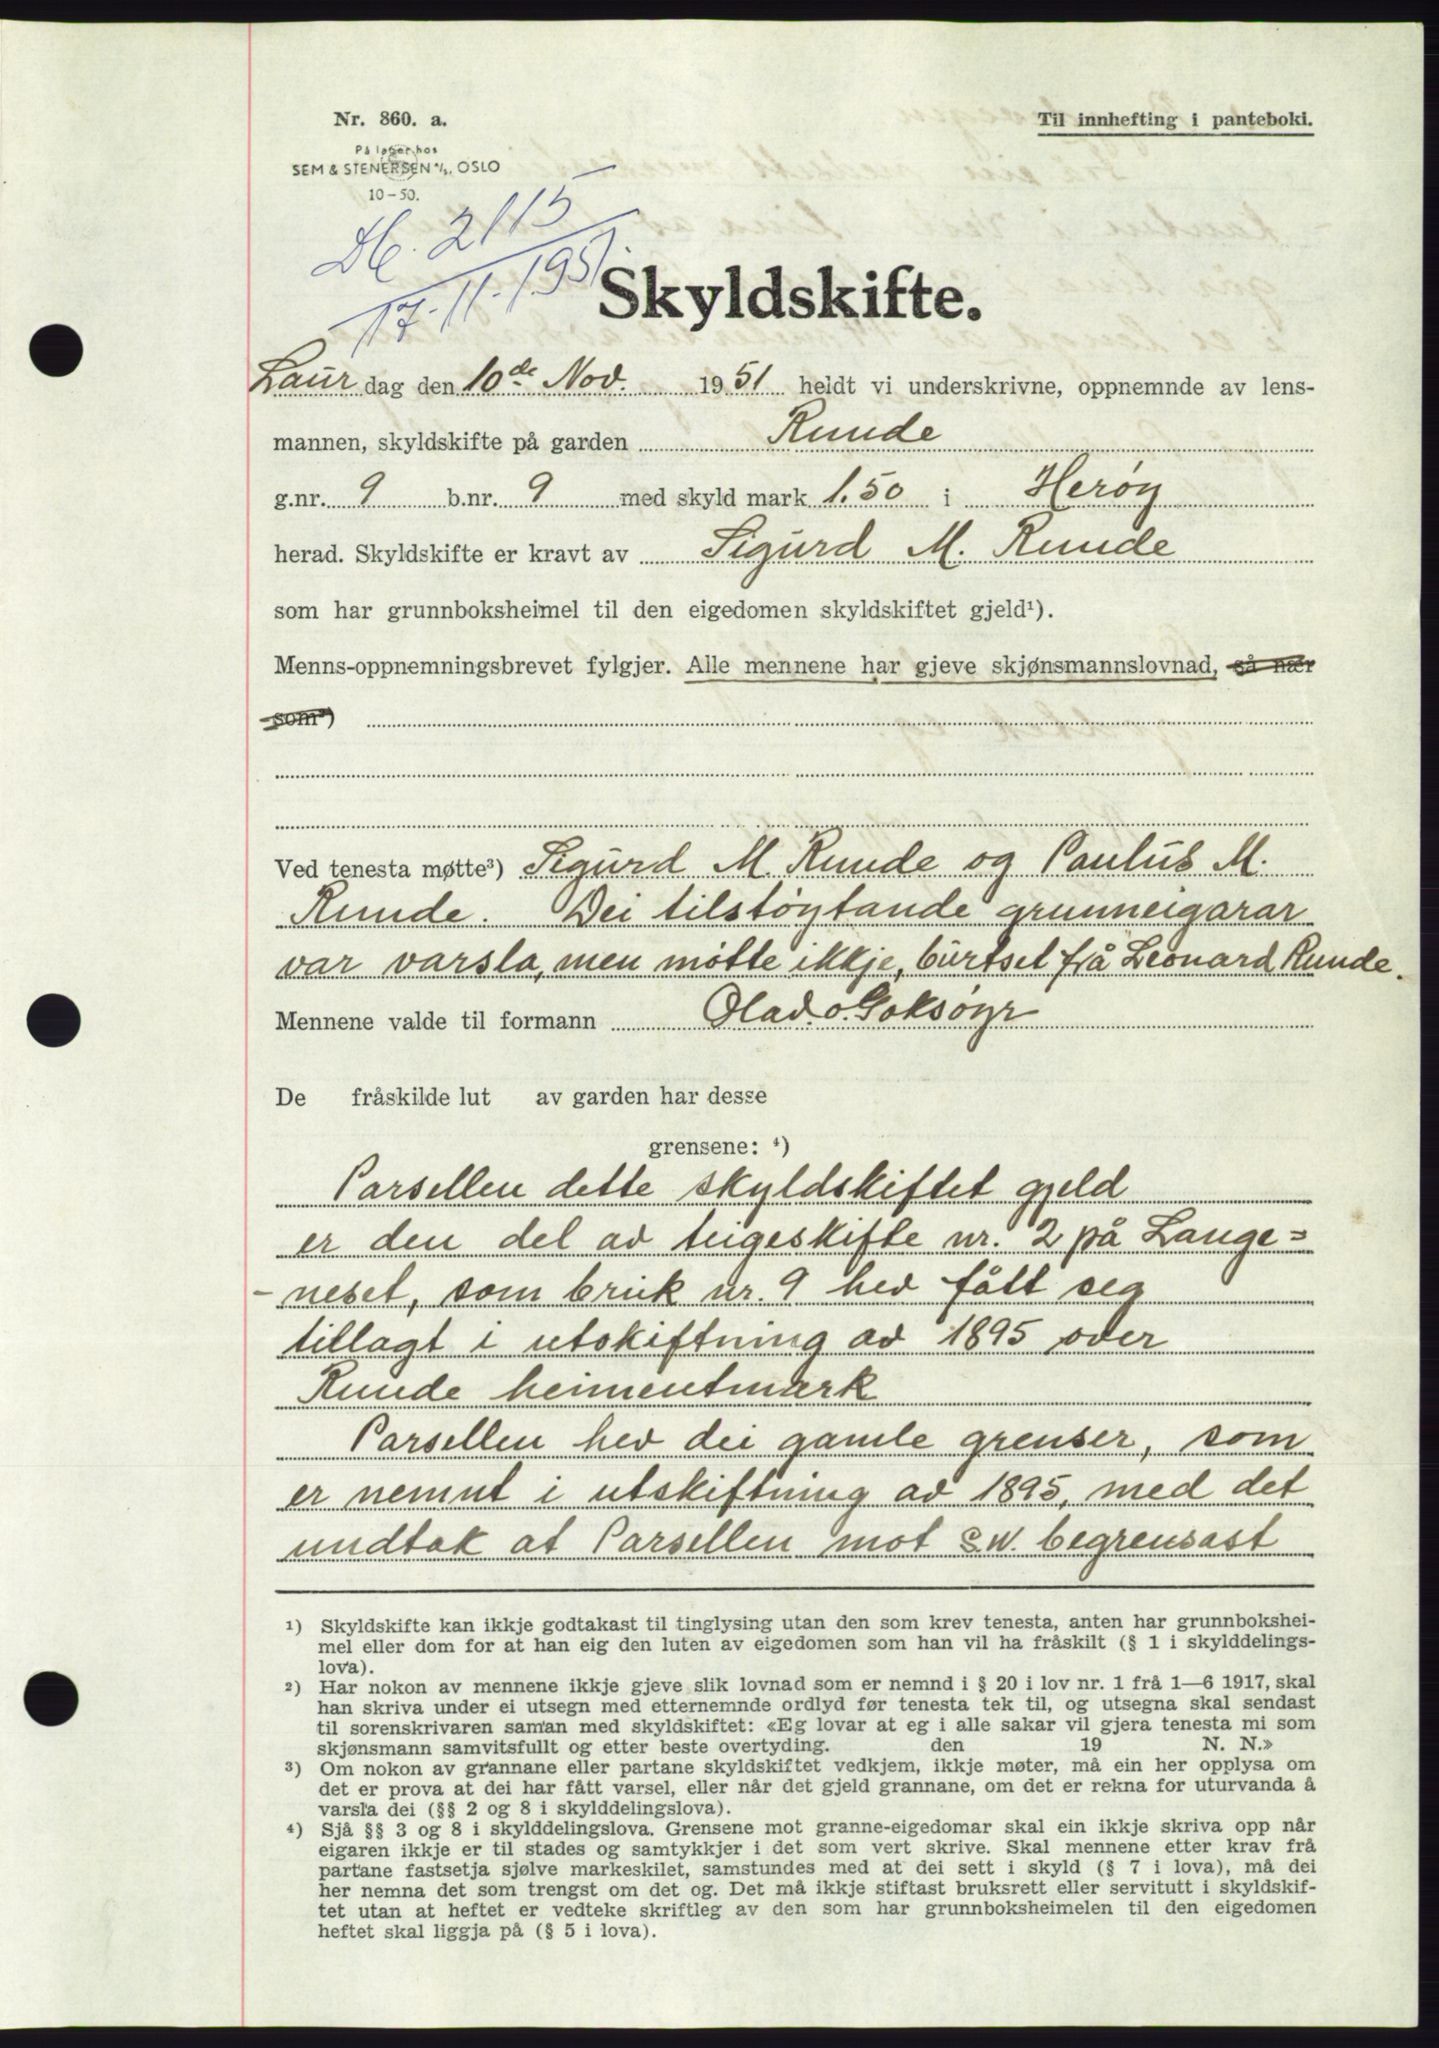 Nr. 860. a.
Til innhefting i panteboki.
På lager hos
SEM & STENERSEN A/S, OSLO
10-50.
Db. 2115
17-11-1951.
Skyldskifte.
Laur dag den 10de Nov. 1951 heldt vi underskrivne, oppnemnde av lens-
mannen, skyldskifte på garden Runde
g.nr. 9 b.nr. 9 med skyld mark 1.50 i Herøy
herad. Skyldskifte er kravt av Sigurd M. Runde
som har grunnboksheimel til den eigedomen skyldskiftet gjeld¹).
Menns-oppnemningsbrevet fylgjer. Alle mennene har gjeve skjønsmannslovnad, så nær
som²)
Ved tenesta møtte³) Sigurd M. Runde og Paulus M.
Runde. Dei tilstøytande grunneigarar
var varsla, men møtte ikkje, burtset frå Leonard Runde.
Mennene valde til formann Olav. O. Goksøyr
De fråskilde lut av garden har desse
grensene: ⁴)
Parsellen dette skyldskiftet gjeld
er den del av teigeskifte nr. 2 på Lange=
-neset, som bruk nr. 9 hev fått seg
tillagt i utskiftning av 1895 over
Runde heimeutmark
Parsellen hev dei gamle grenser, som
er nemnt i utskiftning av 1895, med det
undtak at Parsellen mot S.W. begrensast
¹) Skyldskifte kan ikkje godtakast til tinglysing utan den som krev tenesta, anten har grunnbokshei-
mel eller dom for at han eig den luten av eigedomen som han vil ha fråskilt (§ 1 i skylddelings-
lova).
²) Har nokon av mennene ikkje gjeve slik lovnad som er nemnd i § 20 i lov nr. 1 frå 1—6 1917, skal
han skriva under ei utsegn med etternemnde ordlyd før tenesta tek til, og utsegna skal sendast
til sorenskrivaren saman med skyldskiftet: «Eg lovar at eg i alle sakar vil gjera tenesta mi som
skjønsmann samvitsfullt og etter beste overtyding. den 19 N. N.»
³) Om nokon av grannane eller partane skyldskiftet vedkjem, ikkje møter, må ein her opplysa om
det er prova at dei har fått varsel, eller når det gjeld grannane, om det er rekna for uturvanda å
varsla dei (§§ 2 og 8 i skylddelingslova).
⁴) Sjå §§ 3 og 8 i skylddelingslova. Grensene mot granne-eigedomar skal ein ikkje skriva opp når
eigaren ikkje er til stades og samtykkjer i det som vert skrive. Skal mennene etter krav frå
partane fastsetja sjølve markeskilet, samstundes med at dei sett i skyld (§ 7 i lova), må dei
her nemna det som trengst om det og. Det må ikkje stiftast bruksrett eller servitutt i skyldskif-
tet utan at heftet er vedteke skriftleg av den som har grunnboksheimelen til den eigedomen
heftet skal liggja på (§ 5 i lova).